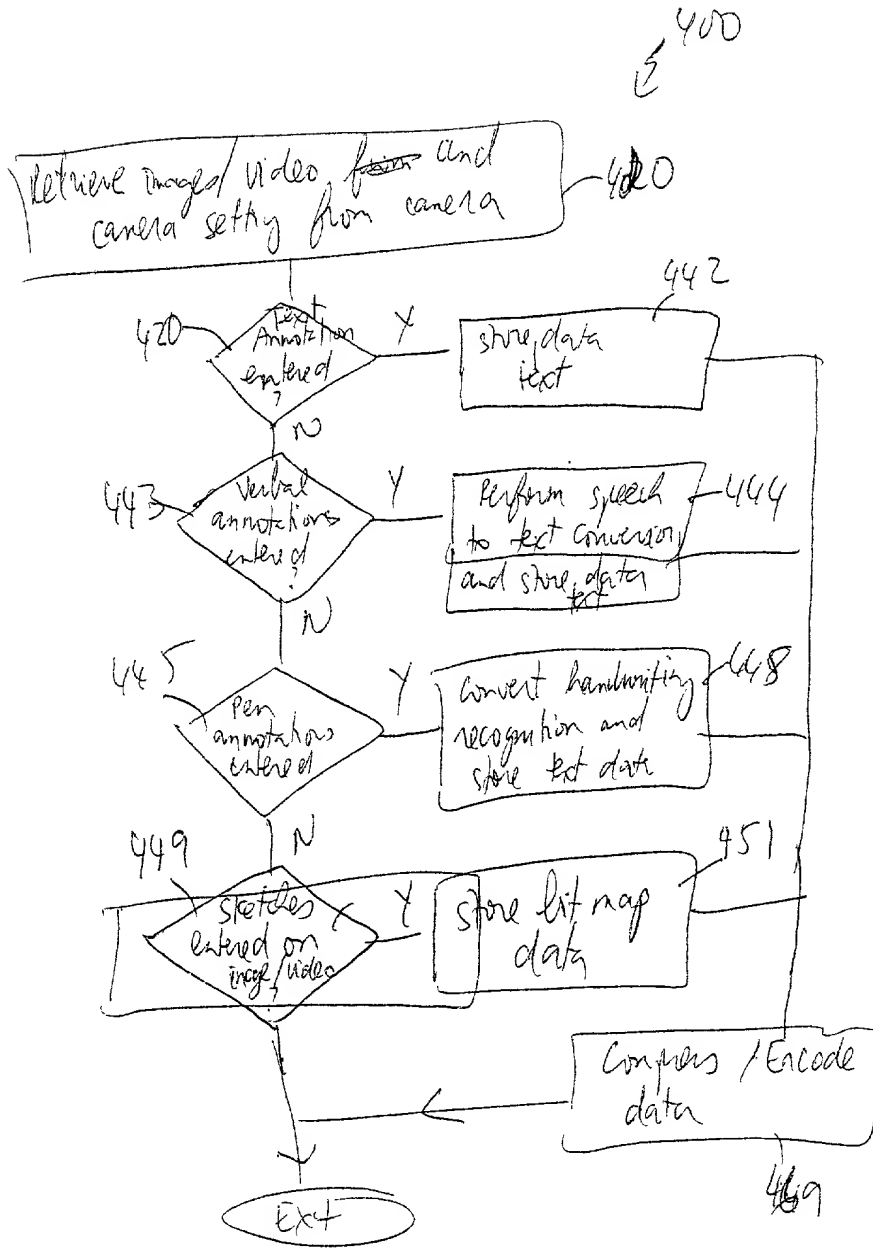 400
Retrieve image/ video and
camera setting from camera
420
Text
Annotation
entered
?
Y
442
store data
text
N
443
Verbal
annotations
entered
?
Y
Perform speech
to text conversion
and store data
text
444
N
445
Pen
annotations
entered
Y
Convert handwriting
recognition and
store text data
448
N
449
Sketches
entered on
image/video
?
Y
store bit map
data
451
Compress / Encode
data
Exit